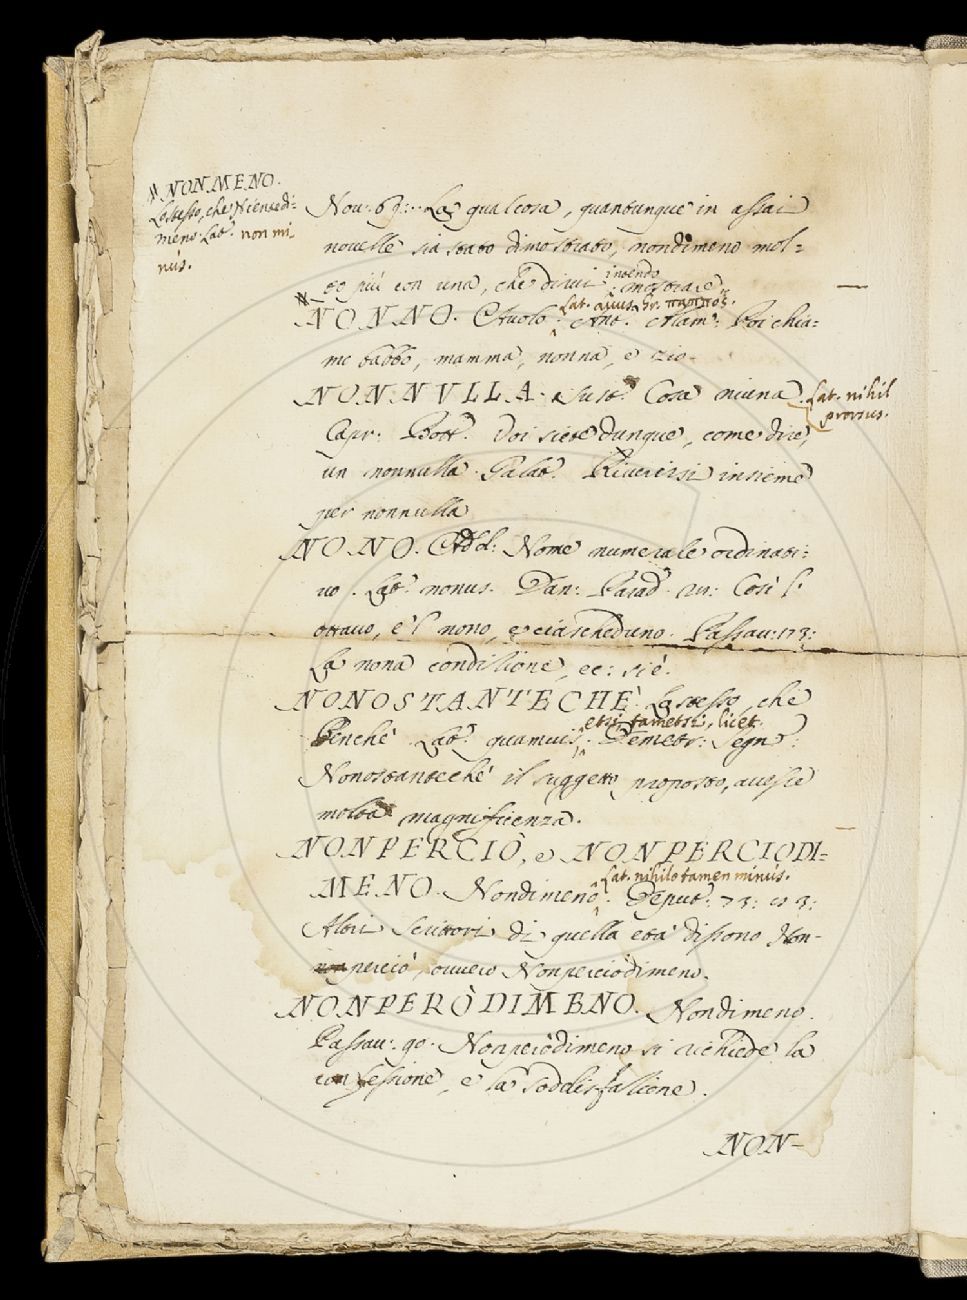 # NONMENO.
Lo stesso, che Nientedi-
meno. Lat. non mi-
nús.
Nov. 69: La qual cosa, quantunque in assai
novelle sia stato dimostrato, nondimeno mol=
to più con una, che dirvi intendo mostrare.
NONNO. Avolo. Lat. avus. Gr. παππος.
Ant. Alam: Poi chia=
mo babbo, mamma, nonna, e zio.
NONNVLLA. Sust. Cosa niuna. Lat. nihil
prorsus.
Capr: Bott. Voi siete dunque, come dire,
un nonnulla. Galat. Riversi insieme
per nonnulla
NONO. Add: Nome numerale ordinati=
vo. Lat. nonus. Dan: Parad. Così l'
ottavo, e'l nono, e ciascheduno. Passav: 173:
La nona condizione, ec: si è.
NONOSTANTECHE. Lo stesso, che
Benchè Lat. quamvis, etsi, tametsi, licet.
Demetr: Segn:
Nonostantechè il suggetto proposto, avesse
molta magnificenza.
NONPERCIÒ, e NONPERCIODI=
MENO. Nondimeno. Lat. nihilo tamen minús.
Deput. 73: es 3:
Altri Scrittori di quella età dissono Non-
perciò, ovvero Nonperciòdimeno.
NONPERÒDIMENO. Nondimeno.
Passav. 90. Nonperòdimeno si richiede la
confessione, e la soddisfazione.
NON=